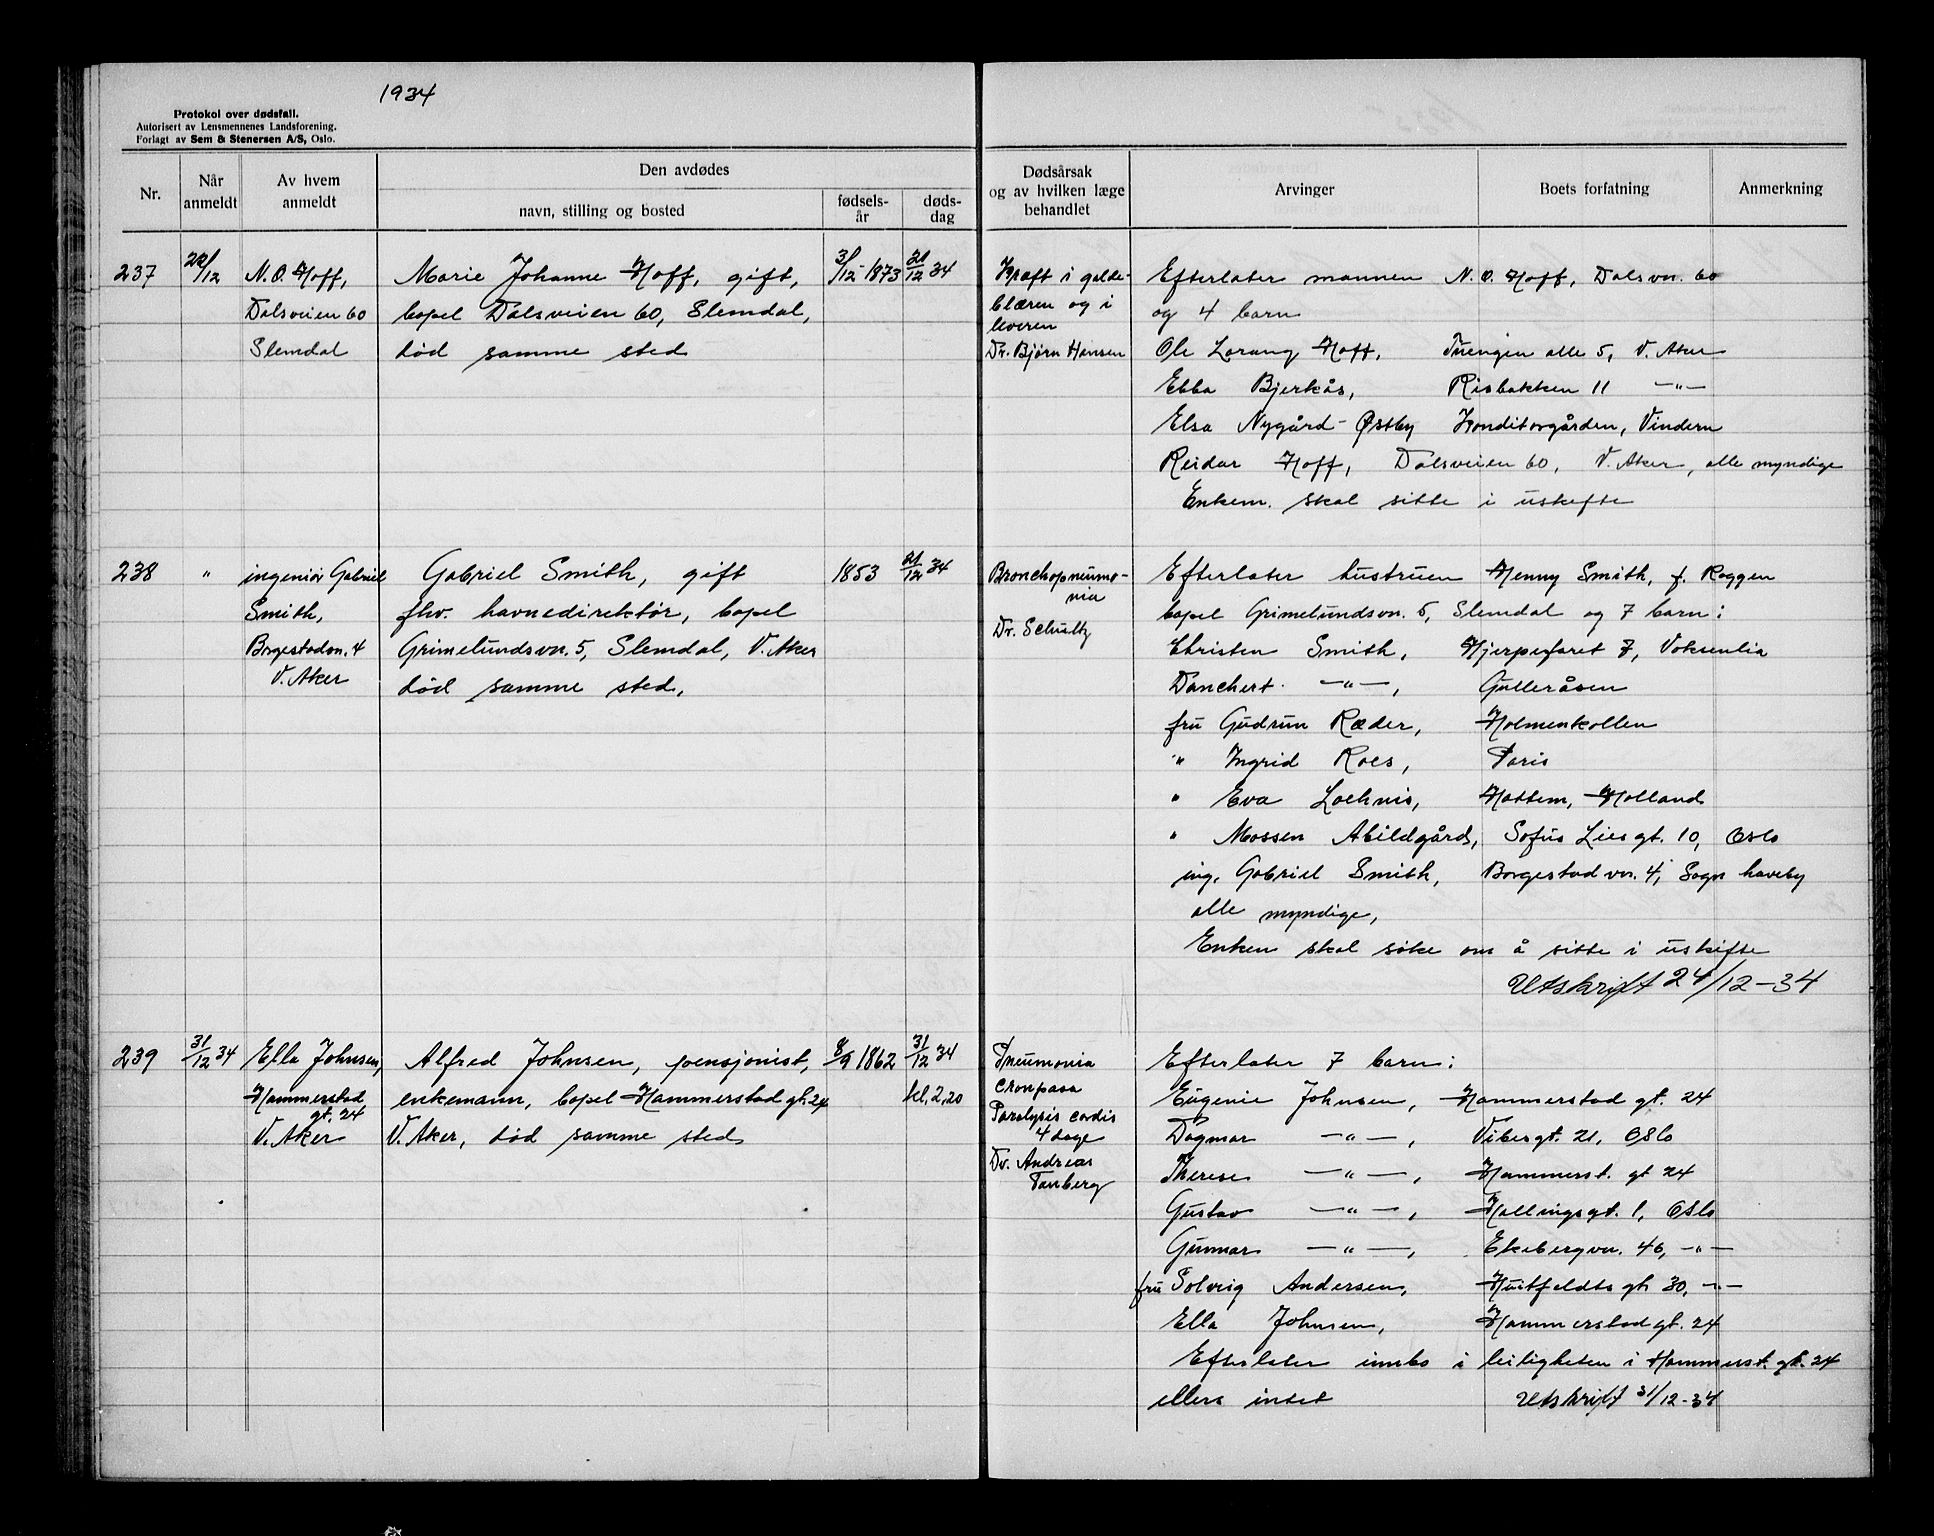 1934
Protokol over dødsfall.
Autorisert av Lensmennenes Landsforening.
Forlagt av Sem & Stenersen A/S, Oslo.
Nr.
Når anmeldt
Av hvem anmeldt
Den avdødes
navn, stilling og bosted
fødsels-år
døds-dag
Dødsårsak og av hvilken læge behandlet
Arvinger
Boets forfatning
Anmerkning
237
22/12
N. O. Hoff,
Dalsveien 60
Slemdal
Marie Johanne Hoff, gift,
bopel Dalsveien 60, Slemdal,
død samme sted
31/12-1873
21/12 34
Kræft i galde-
blæren og i
leveren
Dr. Bjørn Hansen
Efterlater mannen N. O. Hoff, Dalsvn. 60
og 4 barn
Ole Lorang Hoff, Tuengen alle 5, V. Aker
Ebba Bjerkås, Risbakken 11 —"—
Elsa Nygård-Østby Konditorgården, Vindern
Reidar Hoff, Dalsveien 60, V. Aker, alle myndige
Enkem. skal sitte i uskifte
238
"
ingeniør Gabriel
Smith,
Borgestadvn. 4
V. Aker
Gabriel Smith, gift
fhv. havnedirektør, bopel
Grimelundsvn. 5, Slemdal, V. Aker
død samme sted,
1853
21/12 34
Bronchopneumo-
nia
Dr. Schultz
Efterlater hustruen Henny Smith, f. Roggen
bopel Grimelundsvn. 5, Slemdal og 7 barn:
Christen Smith, Hjerpefaret 7, Voksenlia
Danchert —"—, Gulleråsen
fru Gudrun Ræder, Holmenkollen
" Ingrid Roes, Paris
" Eva Loehnis, Hattem, Holland
" Mossen Abildgård, Sofus Lies gt. 10, Oslo
ing. Gabriel Smith, Borgestad vn. 4, Sogn haveby
alle myndige,
Enken skal søke om å sitte i uskifte
Utskrift 24/12-34
239
31/12 34
Ella Johnsen,
Hammerstad
gt. 24
V. Aker
Alfred Johnsen, pensjonist,
enkemann, bopel Hammerstad gt. 24
V. Aker, død samme sted
8/9 1862
31/12 34
kl. 2,20
Pneumonia
crouposa
Paralysis cordis
4 dage
Dr. Andreas
Tanberg
Efterlater 7 barn:
Eugenie Johnsen, Hammerstad gt. 24
Dagmar —"—, Vibesgt. 21, Oslo
Therese —"—, Hammerst. gt 24
Gustav —"—, Hallingsgt. 1, Oslo
Gunnar —"—, Ekebergvn. 46, —"—
fru Solveig Andersen, Huitfeldts gt 30, —"—
Ella Johnsen, Hammerstad gt. 24
Efterlater innbo i leiligheten i Hammerst. gt. 24
ellers intet
Utskrift 31/12-34